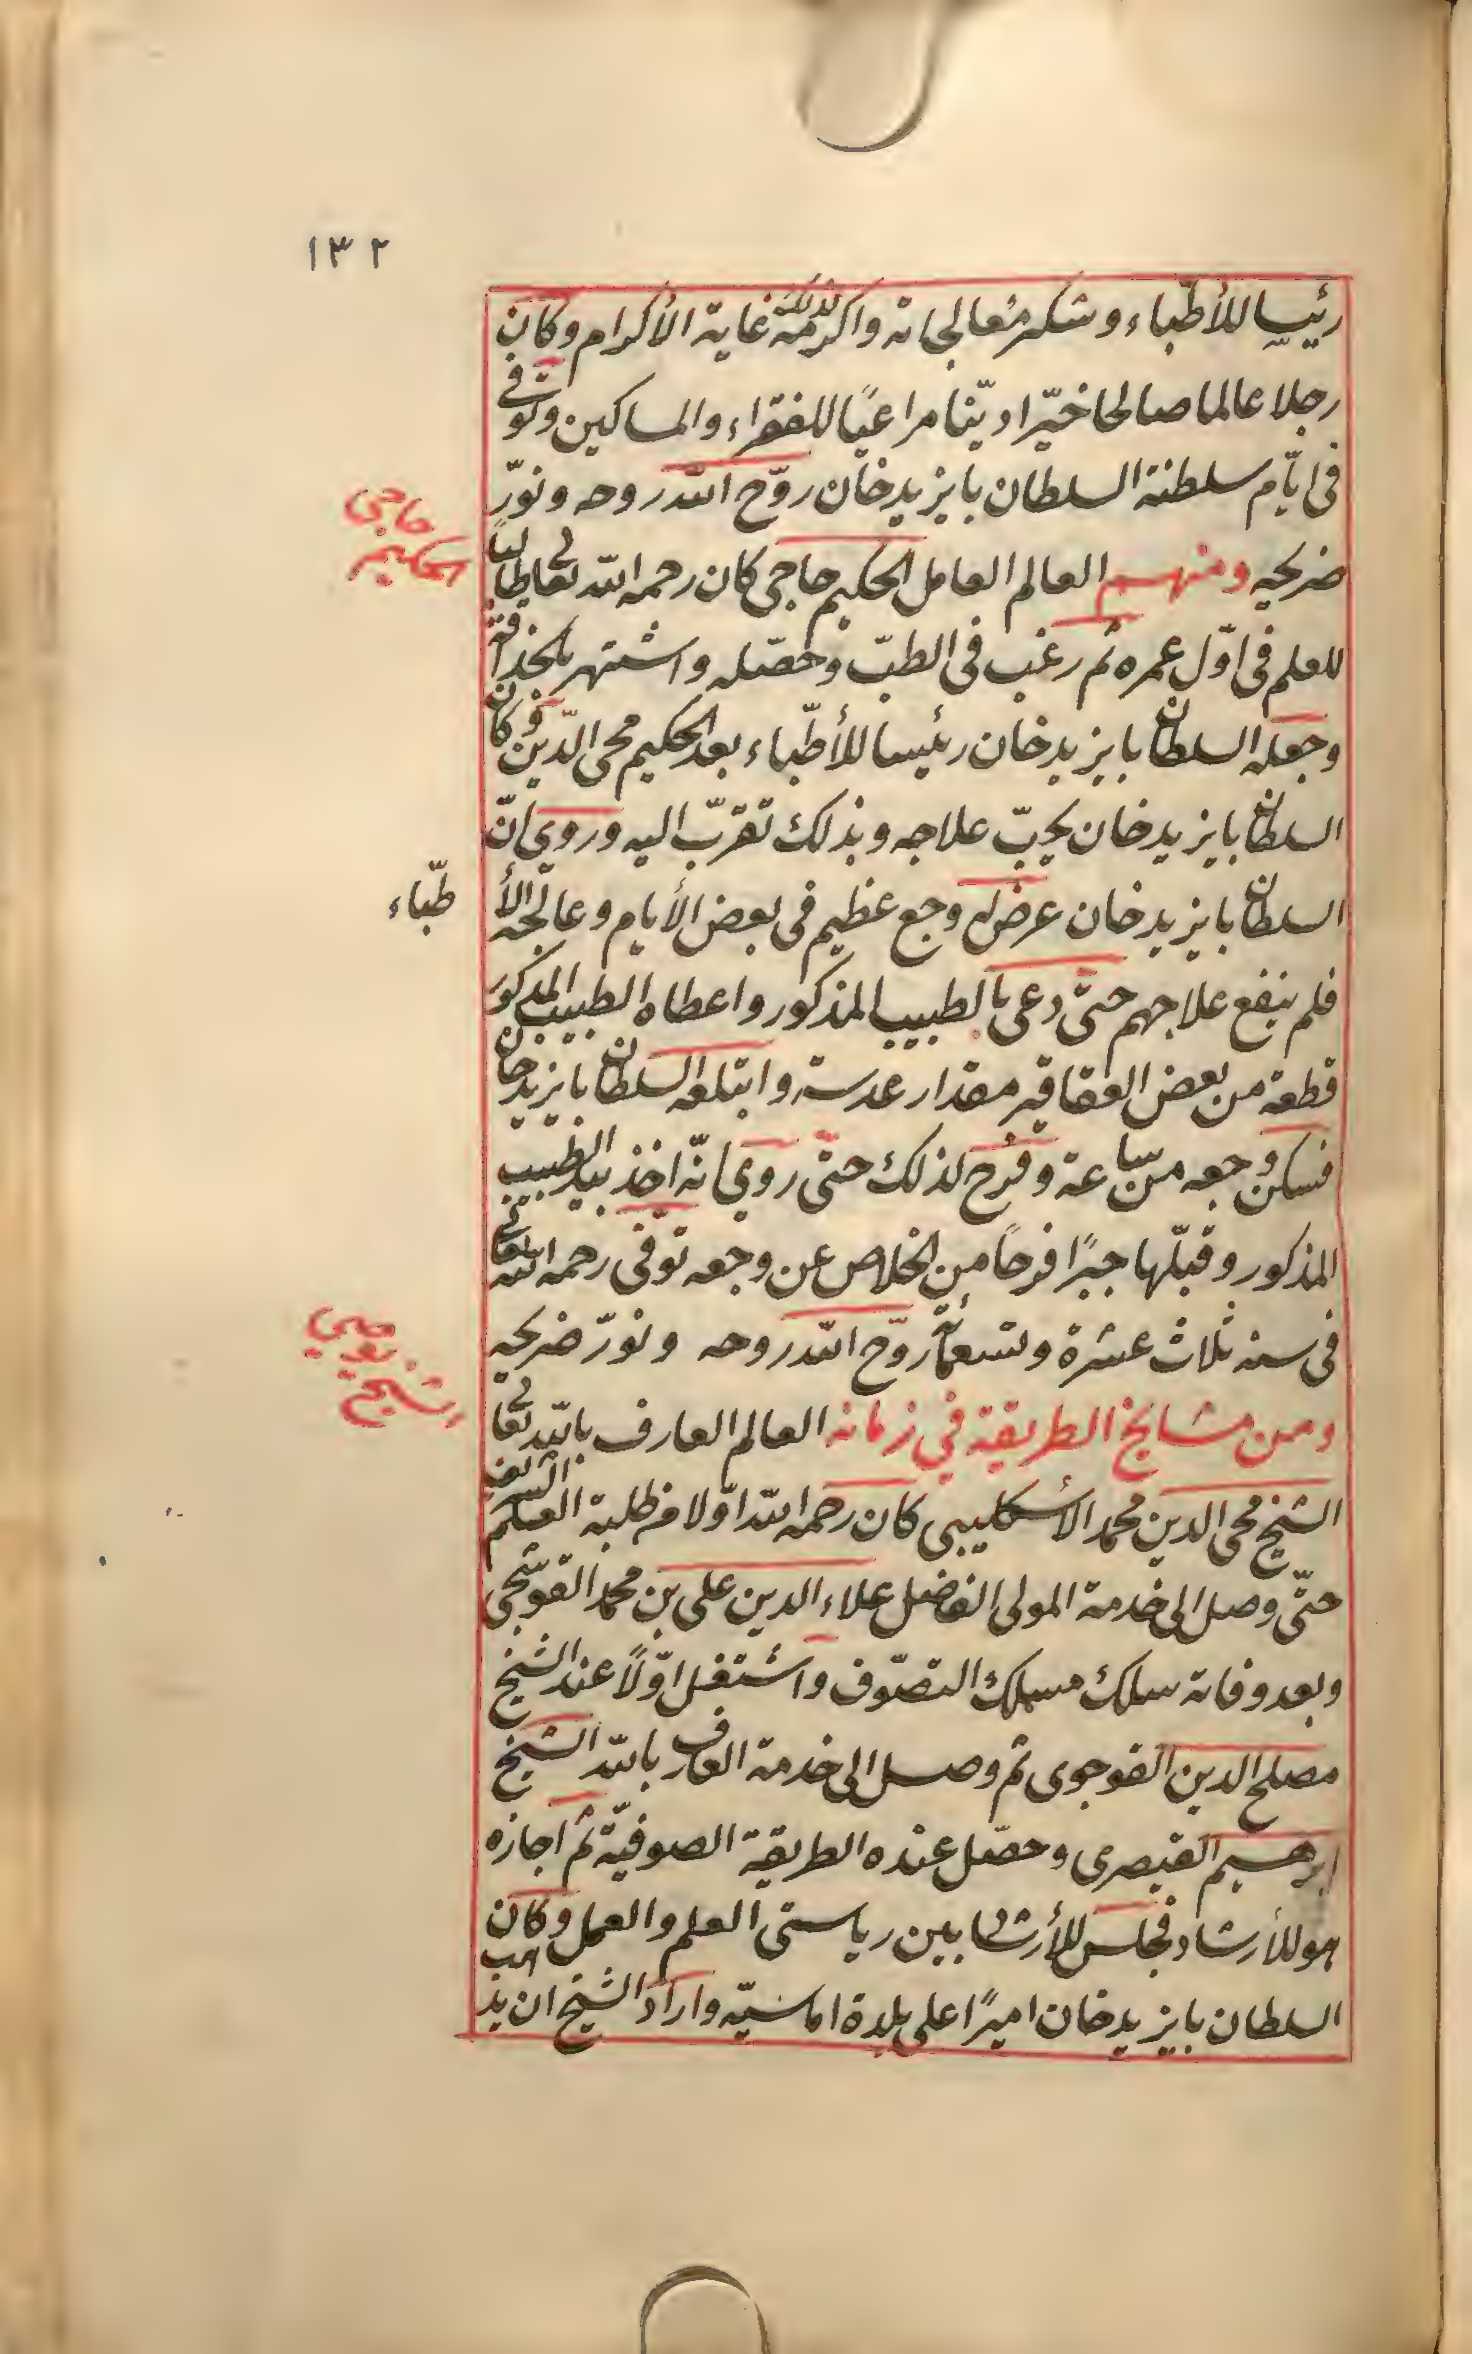 ١٣٢
رئيسا للأطّباء وشكر معالجاته واكرمه لذلك غاية الأكرام وكان
رجلا عالما صالحا خيّرا ديّنا مراعيًا للفقراء والمساكين وتوفى
فى ايّام سلطنة السلطان بايزيدخان روّح الله روحه ونوّر
ضريحيه ومنهم العالم العامل الحكيم حاجى كان رحمه الله تعالى طالبًا
حاجى
الحكيم
للعلم فى اوّل عمره ثم رغب فى الطبّ وحصّله واشتهر بالحذاقة
وجعله السلطان بايزيدخان رئيسا للأطّباء بعد الحكيم محى الدّين وكان
السلطان بايزيدخان يحبّ علاجه وبذلك تقرّب اليه وروى انّ
السلطان بايزيدخان عرض له وجع عظيم فى بعض الأيام وعالجه الأ
طّباء
فلم ينفع علاجهم حتى دعى بالطبيب المذكور واعطاه الطبيب المذكور
قطعة من بعض العقاقير مقدار عدسة وابتلعه السلطان بايزيدخان
فسكن وجعه من ساعة وفرح لذلك حتى روى انّه اخذ بيد الطبيب
المذكور وقبّلها جبرًا فرحًا من الخلاص عن وجعه توفى رحمه الله تعالى
فى سنه ثلاث عشرة وتسعمائة روّح الله روحه ونورّ ضريحيه
ومن مشايخ الطريقة في زمانه العالم العارف بالله تعالى
الشيخ
الشيخ محى الدين محمد الأسكليبى كان رحمه الله اوّلا من طلبة العلم الشريف
حتّى وصل الى خدمة المولى الفاضل علاء الدين على بن محمد القوشجى
وبعد وفاته سلك مسلك التصوّف واشتغل اوّلًا عند الشيخ
مصلح الدين القوجوى ثم وصل الى خدمة العارف بالله الشيخ
ابرهيم القيصرى وحصّل عنده الطريقة الصوفيّة ثم اجازه
هو للأرشاد فجلس للأرشاد بين رياستى العلم والعمل وكان
السلطان بايزيدخان اميرًا على بلدة اماسيّه واراد الشيخ ان يذهب